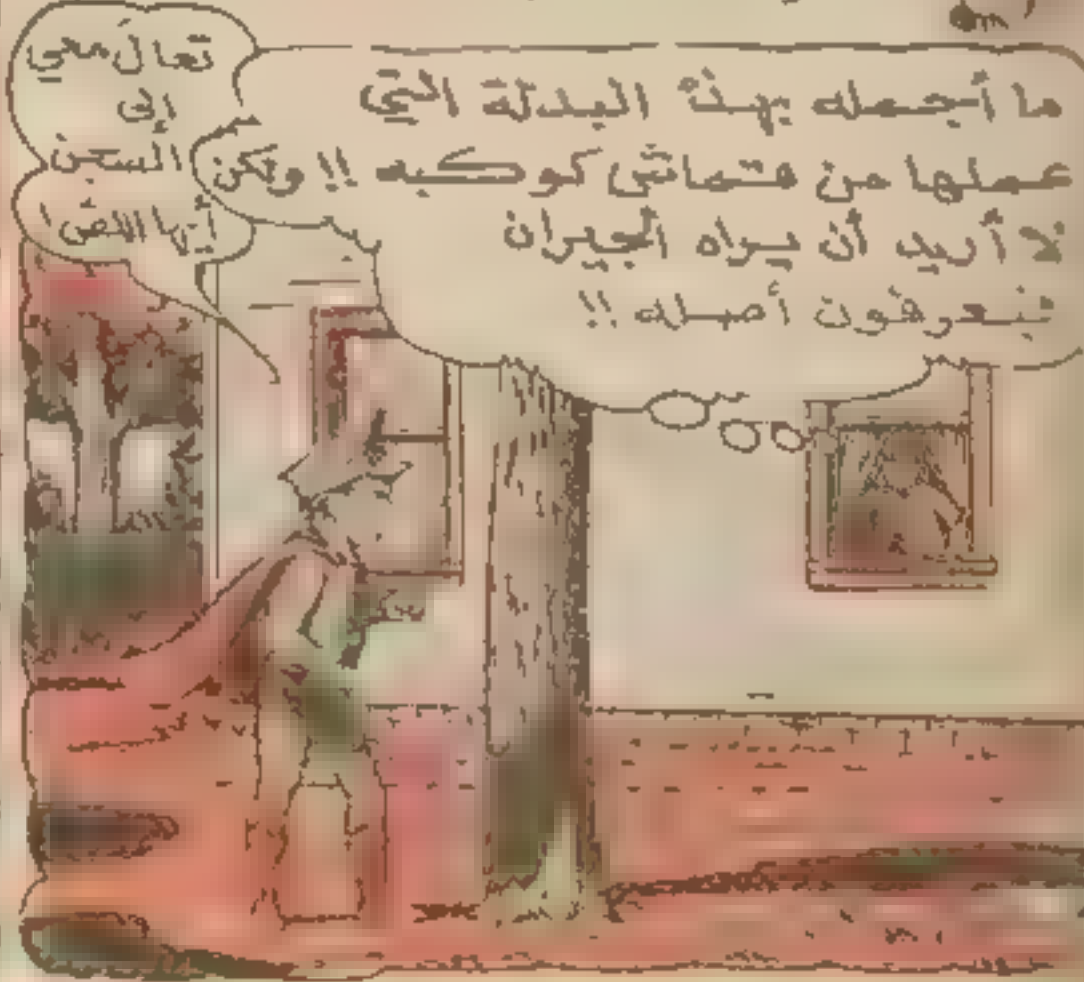 ما أجمله بهذه البدلة التي
عملها من قماش كوكبه !! ولكن
لا أريد أن يراه الجيران
فيعرفون أصله !!
تعال معي
إلى
السجن
أيها اللص !